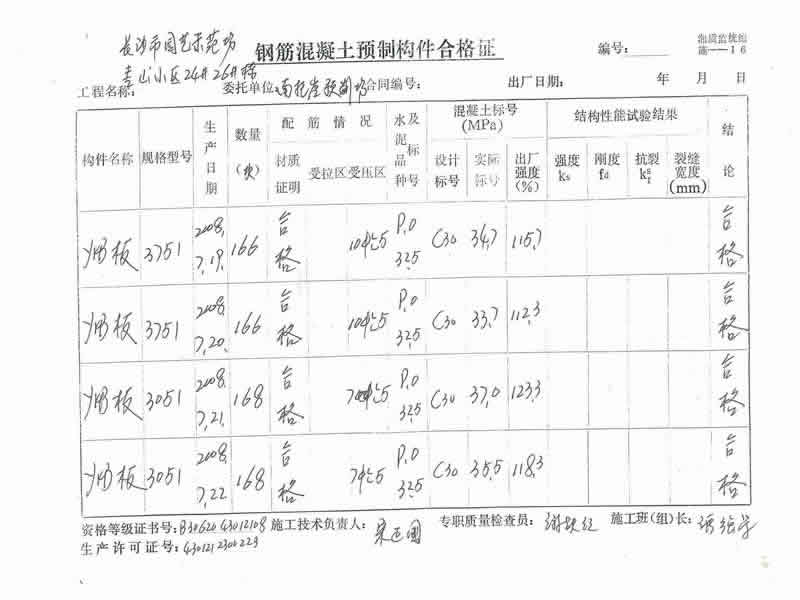 长沙市园艺示范场
钢筋混凝土预制构件合格证
编号:
湘质监统编
施—16
青山小区24#26#栋
工程名称:
委托单位: 南托岸预制场
合同编号:
出厂日期: 年 月 日
构件名称 规格型号 生产日期 数量(块) 配筋情况 水泥品种及标号 混凝土标号(MPa) 结构性能试验结果 结论
材质证明 受拉区 受压区 设计标号 实际标号 出厂强度(%) 强度ks 刚度fd 抗裂 裂缝宽度(mm)
YKB板 3751 2008.7.19. 166 合格 P.O 32.5 C30 34.7 115.7 合格
YKB板 3751 2008.7.20. 166 合格 P.O 32.5 C30 33.7 112.3 合格
YKB板 3051 2008.7.21. 168 合格 P.O 32.5 C30 37.0 123.3 合格
YKB板 3051 2008.7.22 168 合格 P.O 32.5 C30 35.5 118.3 合格
资格等级证书号: B3062043012108 施工技术负责人: 专职质量检查员: 施工班(组)长:
生产许可证号: 4301212300223